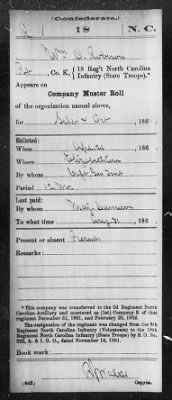 (Confederate.)
18 N. C.
Wm
Co. K, 18 Reg't North Carolina
Infantry (State Troops).*
Appears on
Company Muster Roll
of the organization named above,
for Sept & Oct , 186
Enlisted:
When , 186
Where
By whom Capt
Period 12 Mos
Last paid:
By whom Maj
To what time , 186
Present or absent Present
Remarks:
*This company was transferred to the 2d Regiment North
Carolina Artillery and mustered as (1st) Company B of that
regiment December 31, 1861, and February 28, 1862.
The designation of the regiment was changed from the 8th
Regiment North Carolina Infantry (Volunteers) to the 18th
Regiment North Carolina Infantry (State Troops) by S. O. No.
222, A. & I. G. O., dated November 14, 1861.
Book mark:
(642)
Copyist.